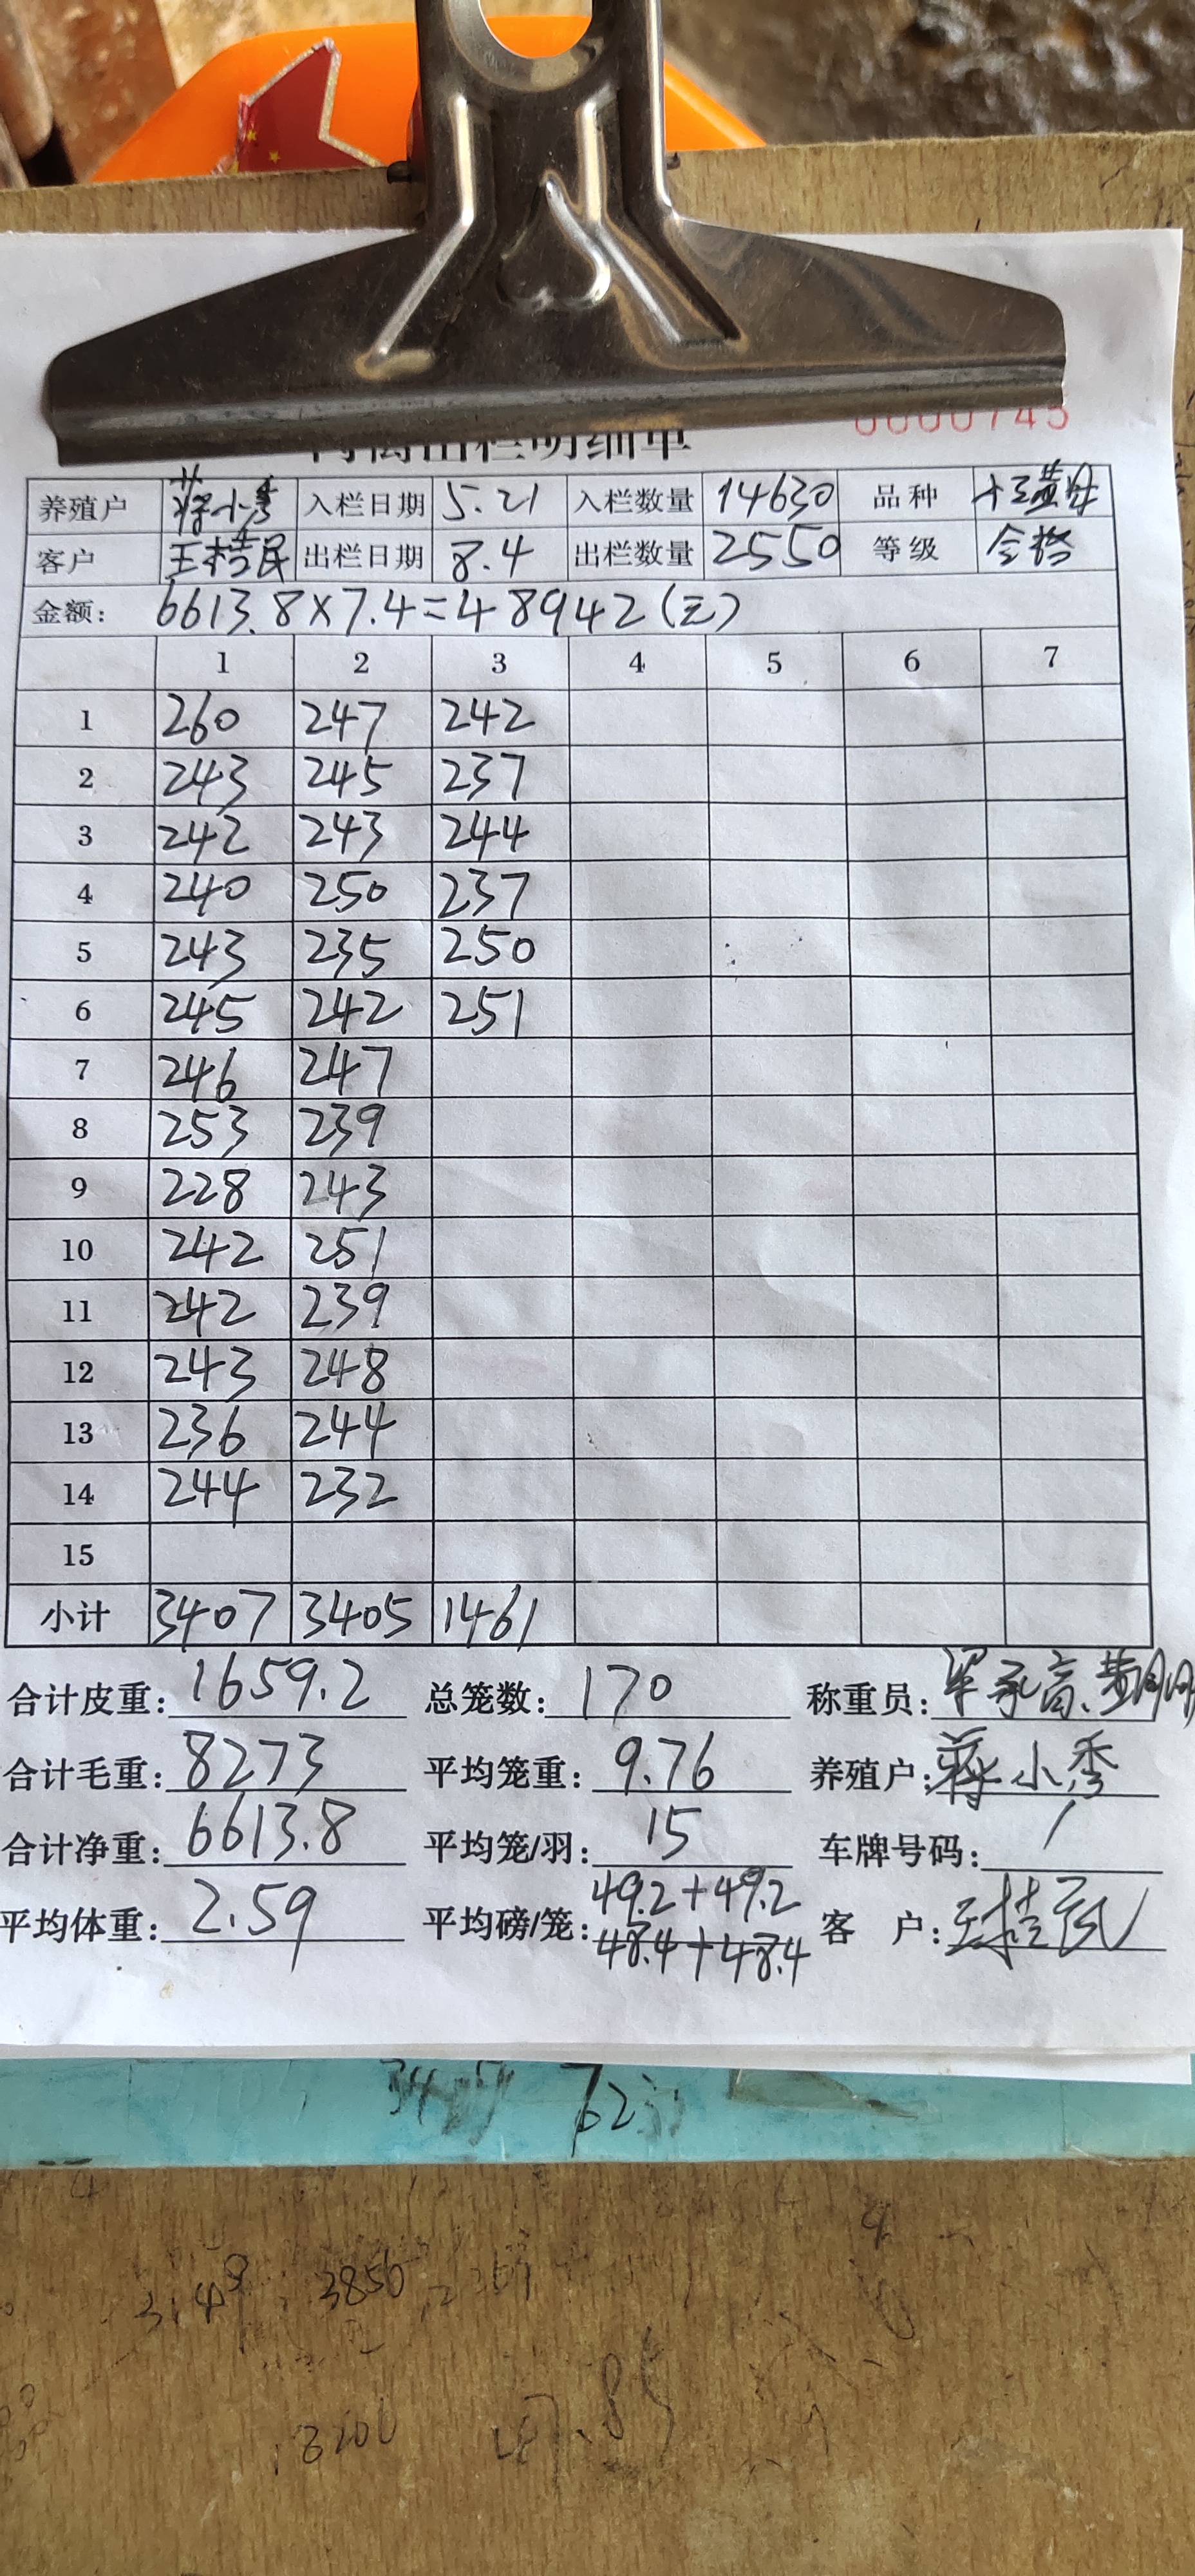 肉禽出栏明细单 0000745
养殖户 蒋小秀 入栏日期 5.21 入栏数量 14630 品种
客户 王桂民 出栏日期 8.4 出栏数量 2550 等级 合格
金额: 6613.8×7.4=48942(元)
1 2 3 4 5 6 7
1 260 247 242
2 243 245 237
3 242 243 244
4 240 250 237
5 243 235 250
6 245 242 251
7 246 247
8 253 239
9 228 243
10 242 251
11 242 239
12 243 248
13 236 244
14 244 232
15
小计 3407 3405 1461
合计皮重: 1659.2 总笼数: 170 称重员:
合计毛重: 8273 平均笼重: 9.76 养殖户: 蒋小秀
合计净重: 6613.8 平均笼/羽: 15 车牌号码: /
平均体重: 2.59 平均磅/笼: 49.2+49.2 客 户: 王桂民
48.4+48.4
3850